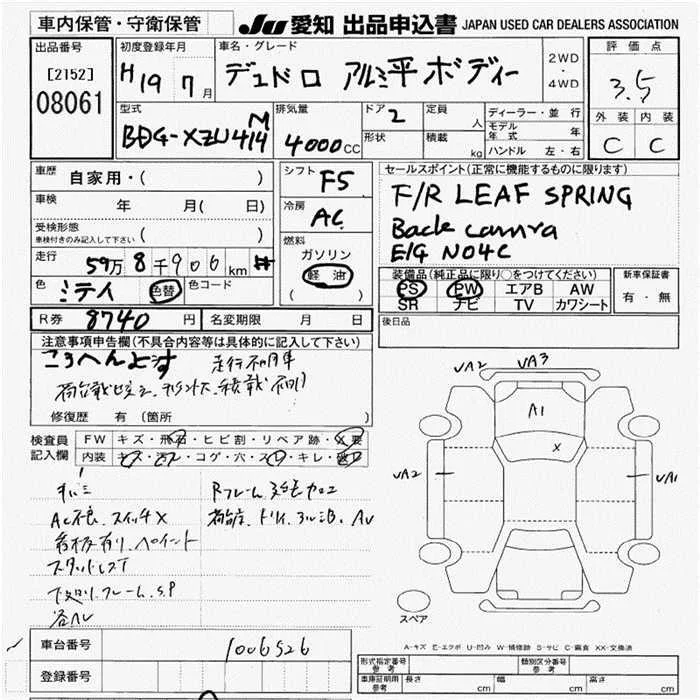 車内保管・守衛保管 JU 愛知 出品申込書 JAPAN USED CAR DEALERS ASSOCIATION
出品番号 初度登録年月 車名・グレード 2WD・4WD 評価点
[2152] H19 7月 デュトロ アルミ平ボディー 3.5
08061
型式 排気量 ドア 2 定員 人 ディーラー・並行 外装 内装
BDG-XZU414M 4000CC 形状 積載 kg モデル年式 年 C C
ハンドル 左・右
車歴 自家用・( ) シフト F5 セールスポイント(正常に機能するものに限ります)
車検 年 月( 日) 冷房 AC F/R LEAF SPRING
受検形態 ( ) Back camra
車検付きのみ記入して下さい 燃料 E/G N04C
走行 59万8千906km # ガソリン 装備品(純正品に限り○をつけてください) 新車保証書
色 色替 色コード 軽油 PS PW エアB AW 有・無
( ) SR ナビ TV カワシート
R券 8740円 名変期限 月 日 後日品
注意事項申告欄(不具合内容等は具体的に記入して下さい)
走行不明車
修復歴 有 (箇所 )
VA2 VA3
A1
X
VA2 VA1
検査員記入欄 FW キズ・飛石・ヒビ割・リペア跡・X要
内装 キズ・汚レ・コゲ・穴・スレ・キレ・破レ
AC不良、スイッチX
看板有り、ペイント
下廻り、フレーム、S,P
各AV
スペア
A-キズ E-エクボ U-凹み W-補修跡 S-サビ C-腐食 XX-交換済
車台番号 1006526 形式指定番号 参考 類別区分番号 参考
登録番号 車庫証明用 参考 長さ cm 幅 cm 高さ cm